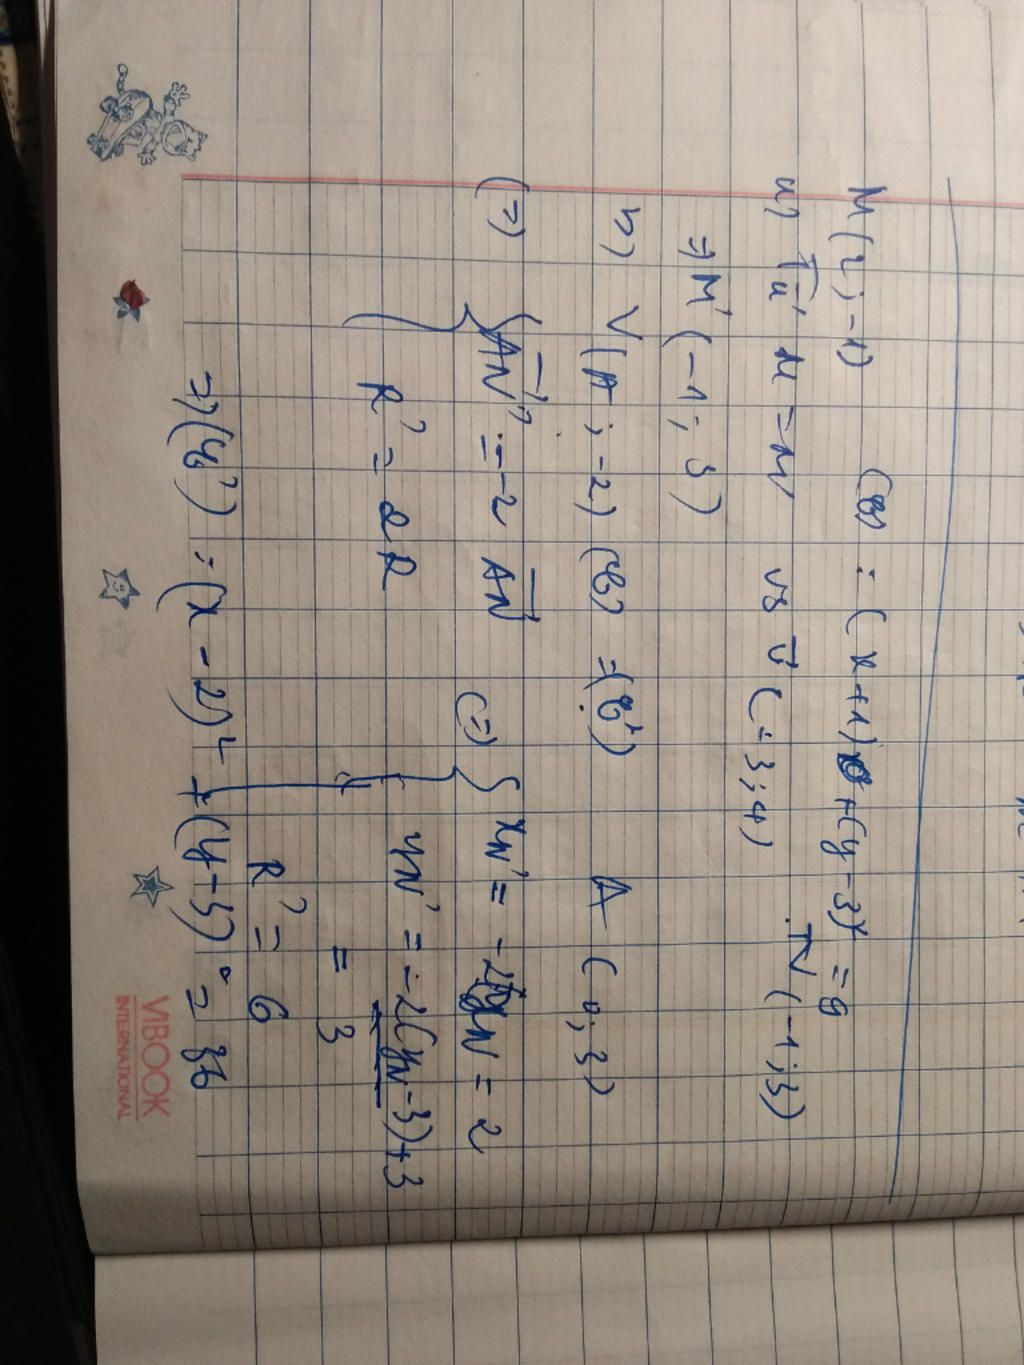 M(2; -1) (C) : (x+1)² + (y-3)² = 9
a) Tv M = M' vs v (-3; 4) IN (-1; 3)
=> M' (-1; 3)
b) V(A; -2) (C) = (C') A (0; 3)
(=) { AN' = -2 AN (=) { xN' = -2xN = 2
R' = 2R yN' = -2(yN - 3) + 3
= 3
R' = 6
=> (C') : (x - 2)² + (y - 3)² = 36
VIBOOK
INTERNATIONAL